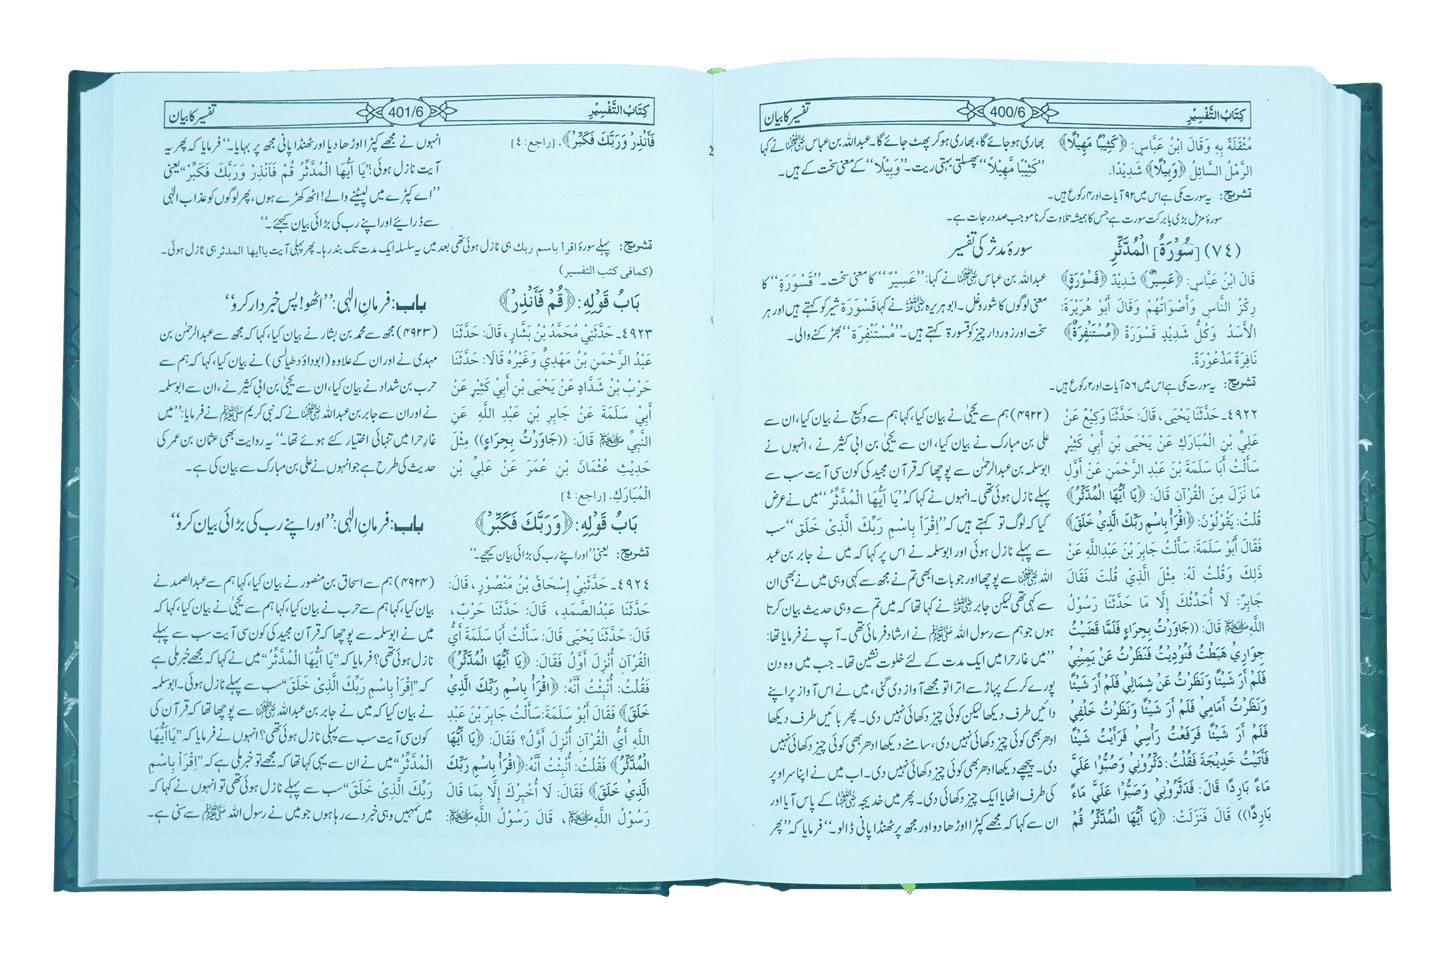 كِتَابُ التَّفْسِيْرِ
400/6
تفسیر کا بیان
مُثْقَلَةٌ بِهِ وَقَالَ ابْنُ عَبَّاسٍ: ﴿كَثِيْبًا مَّهِيْلًا﴾
الرَّمْلُ السَّائِلُ ﴿وَبِيْلًا﴾ شَدِيْدًا.
بھاری ہو جائے گا، بھاری ہو کر پھٹ جائے گا۔ عبداللہ بن عباس رضی اللہ عنہما نے کہا
”كَثِيْبًا مَّهِيْلًا“ پھسلتی بہتی ریت۔ ”وَبِيْلًا“ کے معنی سخت کے ہیں۔
تشریح: یہ سورت مکی ہے اس میں ۹۲ آیات اور ۴ رکوع ہیں۔
سورۂ مزمل بڑی بابرکت سورت ہے جس کا ہمیشہ تلاوت کرنا موجب صد درجات ہے۔
(٧٤) [سُوْرَةُ] الْمُدَّثِّرِ
سورۂ مدثر کی تفسیر
قَالَ ابْنُ عَبَّاسٍ: ﴿عَسِيْرٌ﴾ شَدِيْدٌ ﴿قَسْوَرَةٍ﴾
رِكْزُ النَّاسِ وَأَصْوَاتُهُمْ وَقَالَ أَبُوْ هُرَيْرَةَ:
الْأَسَدُ وَكُلُّ شَدِيْدٍ قَسْوَرَةٌ ﴿مُسْتَنْفِرَةٌ﴾
نَافِرَةٌ مَذْعُوْرَةٌ.
عبداللہ بن عباس رضی اللہ عنہما نے کہا: ”عَسِيْرٌ“ کا معنی سخت۔ ”قَسْوَرَةٍ“ کا
معنی لوگوں کا شور و غل۔ ابو ہریرہ رضی اللہ عنہ نے کہا قَسْوَرَة شیر کو کہتے ہیں اور ہر
سخت اور زور دار چیز کو قسورة کہتے ہیں۔ ”مُسْتَنْفِرَة“ بھڑکنے والی۔
تشریح: یہ سورت مکی ہے اس میں ۵۶ آیات اور ۲ رکوع ہیں۔
٤٩٢٢۔ حَدَّثَنَا يَحْيَى، قَالَ: حَدَّثَنَا وَكِيْعٌ عَنْ
عَلِيِّ بْنِ الْمُبَارَكِ عَنْ يَحْيَى بْنِ أَبِيْ كَثِيْرٍ
سَأَلْتُ أَبَا سَلَمَةَ بْنَ عَبْدِ الرَّحْمَنِ عَنْ أَوَّلِ
مَا نَزَلَ مِنَ الْقُرْآنِ قَالَ: ﴿يَا أَيُّهَا الْمُدَّثِّرُ﴾
قُلْتُ: يَقُوْلُوْنَ: ﴿اقْرَأْ بِاسْمِ رَبِّكَ الَّذِيْ خَلَقَ﴾
فَقَالَ أَبُوْ سَلَمَةَ: سَأَلْتُ جَابِرَ بْنَ عَبْدِاللَّهِ عَنْ
ذَلِكَ وَقُلْتُ لَهُ: مِثْلَ الَّذِيْ قُلْتَ فَقَالَ
جَابِرٌ: لَا أُحَدِّثُكَ إِلَّا مَا حَدَّثَنَا رَسُوْلُ
اللَّهِ ﷺ قَالَ: ((جَاوَرْتُ بِحِرَاءٍ فَلَمَّا قَضَيْتُ
جِوَارِيْ هَبَطْتُ فَنُوْدِيْتُ فَنَظَرْتُ عَنْ يَمِيْنِيْ
فَلَمْ أَرَ شَيْئًا وَنَظَرْتُ عَنْ شِمَالِيْ فَلَمْ أَرَ شَيْئًا
وَنَظَرْتُ أَمَامِيْ فَلَمْ أَرَ شَيْئًا وَنَظَرْتُ خَلْفِيْ
فَلَمْ أَرَ شَيْئًا فَرَفَعْتُ رَأْسِيْ فَرَأَيْتُ شَيْئًا
فَأَتَيْتُ خَدِيْجَةَ فَقُلْتُ: دَثِّرُوْنِيْ وَصُبُّوْا عَلَيَّ
مَاءً بَارِدًا قَالَ: فَدَثَّرُوْنِيْ وَصَبُّوْا عَلَيَّ مَاءً
بَارِدًا)) قَالَ فَنَزَلَتْ: ﴿يَا أَيُّهَا الْمُدَّثِّرُ قُمْ
(۴۹۲۲) ہم سے یحییٰ نے بیان کیا، کہا ہم سے وکیع نے بیان کیا، ان سے
علی بن مبارک نے بیان کیا، ان سے یحییٰ بن ابی کثیر نے، انہوں نے
ابوسلمہ بن عبدالرحمٰن سے پوچھا کہ قرآن مجید کی کون سی آیت سب سے
پہلے نازل ہوئی تھی۔ انہوں نے کہا کہ ”يَا أَيُّهَا الْمُدَّثِّرُ“ میں نے عرض
کیا کہ لوگ تو کہتے ہیں کہ ”اقْرَأْ بِاسْمِ رَبِّكَ الَّذِيْ خَلَقَ“ سب
سے پہلے نازل ہوئی اور ابوسلمہ نے اس پر کہا کہ میں نے جابر بن عبد
اللہ رضی اللہ عنہما سے پوچھا اور جو بات ابھی تم نے مجھ سے کہی وہی میں نے بھی ان
سے کہی تھی لیکن جابر رضی اللہ عنہ نے کہا تھا کہ میں تم سے وہی حدیث بیان کرتا
ہوں جو ہم سے رسول اللہ ﷺ نے ارشاد فرمائی تھی۔ آپ نے فرمایا تھا:
”میں غار حرا میں ایک مدت کے لئے خلوت نشین تھا۔ جب میں وہ دن
پورے کر کے پہاڑ سے اترا تو مجھے آواز دی گئی، میں نے اس آواز پر اپنے
دائیں طرف دیکھا لیکن کوئی چیز دکھائی نہیں دی۔ پھر بائیں طرف دیکھا
ادھر بھی کوئی چیز دکھائی نہیں دی، سامنے دیکھا ادھر بھی کوئی چیز دکھائی نہیں
دی۔ پیچھے دیکھا ادھر بھی کوئی چیز دکھائی نہیں دی۔ اب میں نے اپنا سر اوپر
کی طرف اٹھایا ایک چیز دکھائی دی۔ پھر میں خدیجہ رضی اللہ عنہا کے پاس آیا اور
ان سے کہا کہ مجھے کپڑا اوڑھا دو اور مجھ پر ٹھنڈا پانی ڈالو۔“ فرمایا کہ ”پھر
كِتَابُ التَّفْسِيْرِ
401/6
تفسیر کا بیان
فَأَنْذِرْ وَرَبَّكَ فَكَبِّرْ﴾. [راجع: ٤]
انہوں نے مجھے کپڑا اوڑھا دیا اور ٹھنڈا پانی مجھ پر بہایا۔“ فرمایا کہ پھر یہ
آیت نازل ہوئی: ”يَا أَيُّهَا الْمُدَّثِّرُ قُمْ فَأَنْذِرْ وَرَبَّكَ فَكَبِّرْ“ یعنی
”اے کپڑے میں لپٹنے والے! اٹھ کھڑے ہوں، پھر لوگوں کو عذاب الٰہی
سے ڈرائیے اور اپنے رب کی بڑائی بیان کیجئے۔“
تشریح: پہلے سورۂ اقرأ باسم ربك ہی نازل ہوئی تھی بعد میں یہ سلسلہ ایک مدت تک بند رہا۔ پھر پہلی آیت یاایها المدثر ہی نازل ہوئی۔
(كمافى كتب التفسير)
بَابُ قَوْلِهِ: ﴿قُمْ فَأَنْذِرْ﴾
باب: فرمانِ الٰہی: ”اٹھو! پس خبردار کرو“
٤٩٢٣۔ حَدَّثَنِيْ مُحَمَّدُ بْنُ بَشَّارٍ، قَالَ: حَدَّثَنَا
عَبْدُ الرَّحْمَنِ بْنُ مَهْدِيٍّ وَغَيْرُهُ قَالَا: حَدَّثَنَا
حَرْبُ بْنُ شَدَّادٍ عَنْ يَحْيَى بْنِ أَبِيْ كَثِيْرٍ عَنْ
أَبِيْ سَلَمَةَ عَنْ جَابِرِ بْنِ عَبْدِ اللَّهِ عَنِ
النَّبِيِّ ﷺ قَالَ: ((جَاوَرْتُ بِحِرَاءٍ)) مِثْلَ
حَدِيْثِ عُثْمَانَ بْنِ عُمَرَ عَنْ عَلِيِّ بْنِ
الْمُبَارَكِ. [راجع: ٤]
(۴۹۲۳) مجھ سے محمد بن بشار نے بیان کیا، کہا کہ مجھ سے عبدالرحمٰن بن
مہدی نے اور ان کے علاوہ (ابوداؤد طیالسی) نے بیان کیا، کہا کہ ہم سے
حرب بن شداد نے بیان کیا، ان سے یحییٰ بن ابی کثیر نے، ان سے ابوسلمہ
نے اور ان سے جابر بن عبداللہ رضی اللہ عنہما نے کہ نبی کریم ﷺ نے فرمایا: ”میں
غار حرا میں تنہائی اختیار کئے ہوئے تھا۔“ یہ روایت بھی عثمان بن عمر کی
حدیث کی طرح ہے جو انہوں نے علی بن مبارک سے بیان کی ہے۔
بَابُ قَوْلِهِ: ﴿وَرَبَّكَ فَكَبِّرْ﴾
باب: فرمانِ الٰہی: ”اور اپنے رب کی بڑائی بیان کرو“
تشریح: یعنی ”اور اپنے رب کی بڑائی بیان کیجیے۔“
٤٩٢٤۔ حَدَّثَنِيْ إِسْحَاقُ بْنُ مَنْصُوْرٍ، قَالَ:
حَدَّثَنَا عَبْدُالصَّمَدِ، قَالَ: حَدَّثَنَا حَرْبٌ،
قَالَ: حَدَّثَنَا يَحْيَى قَالَ: سَأَلْتُ أَبَا سَلَمَةَ أَيُّ
الْقُرْآنِ أُنْزِلَ أَوَّلُ فَقَالَ: ﴿يَا أَيُّهَا الْمُدَّثِّرُ﴾
فَقُلْتُ: أُنْبِئْتُ أَنَّهُ: ﴿اقْرَأْ بِاسْمِ رَبِّكَ الَّذِيْ
خَلَقَ﴾ فَقَالَ أَبُوْ سَلَمَةَ: سَأَلْتُ جَابِرَ بْنَ عَبْدِ
اللَّهِ أَيُّ الْقُرْآنِ أُنْزِلَ أَوَّلُ؟ فَقَالَ: ﴿يَا أَيُّهَا
الْمُدَّثِّرُ﴾ فَقُلْتُ: أُنْبِئْتُ أَنَّهُ: ﴿اقْرَأْ بِاسْمِ رَبِّكَ
الَّذِيْ خَلَقَ﴾ فَقَالَ: لَا أُخْبِرُكَ إِلَّا بِمَا قَالَ
رَسُوْلُ اللَّهِ ﷺ، قَالَ رَسُوْلُ اللَّهِ ﷺ:
(۴۹۲۴) ہم سے اسحاق بن منصور نے بیان کیا، کہا ہم سے عبدالصمد نے
بیان کیا، کہا ہم سے حرب نے بیان کیا، کہا ہم سے یحییٰ نے بیان کیا، کہا کہ
میں نے ابوسلمہ سے پوچھا کہ قرآن مجید کی کون سی آیت سب سے پہلے
نازل ہوئی تھی؟ فرمایا کہ ”يَا أَيُّهَا الْمُدَّثِّرُ“ میں نے کہا کہ مجھے خبر ملی ہے
کہ ”اِقْرَأْ بِاسْمِ رَبِّكَ الَّذِيْ خَلَقَ“ سب سے پہلے نازل ہوئی۔ ابوسلمہ
نے بیان کیا کہ میں نے جابر بن عبداللہ رضی اللہ عنہما سے پوچھا تھا کہ قرآن کی
کون سی آیت سب سے پہلے نازل ہوئی تھی؟ انہوں نے فرمایا کہ ”يَا أَيُّهَا
الْمُدَّثِّرُ“ میں نے ان سے یہی کہا تھا کہ مجھے تو خبر ملی ہے کہ ”اِقْرَأْ بِاسْمِ
رَبِّكَ الَّذِيْ خَلَقَ“ سب سے پہلے نازل ہوئی تھی تو انہوں نے کہا کہ
میں تمہیں وہی خبر دے رہا ہوں جو میں نے رسول اللہ ﷺ سے سنی ہے۔